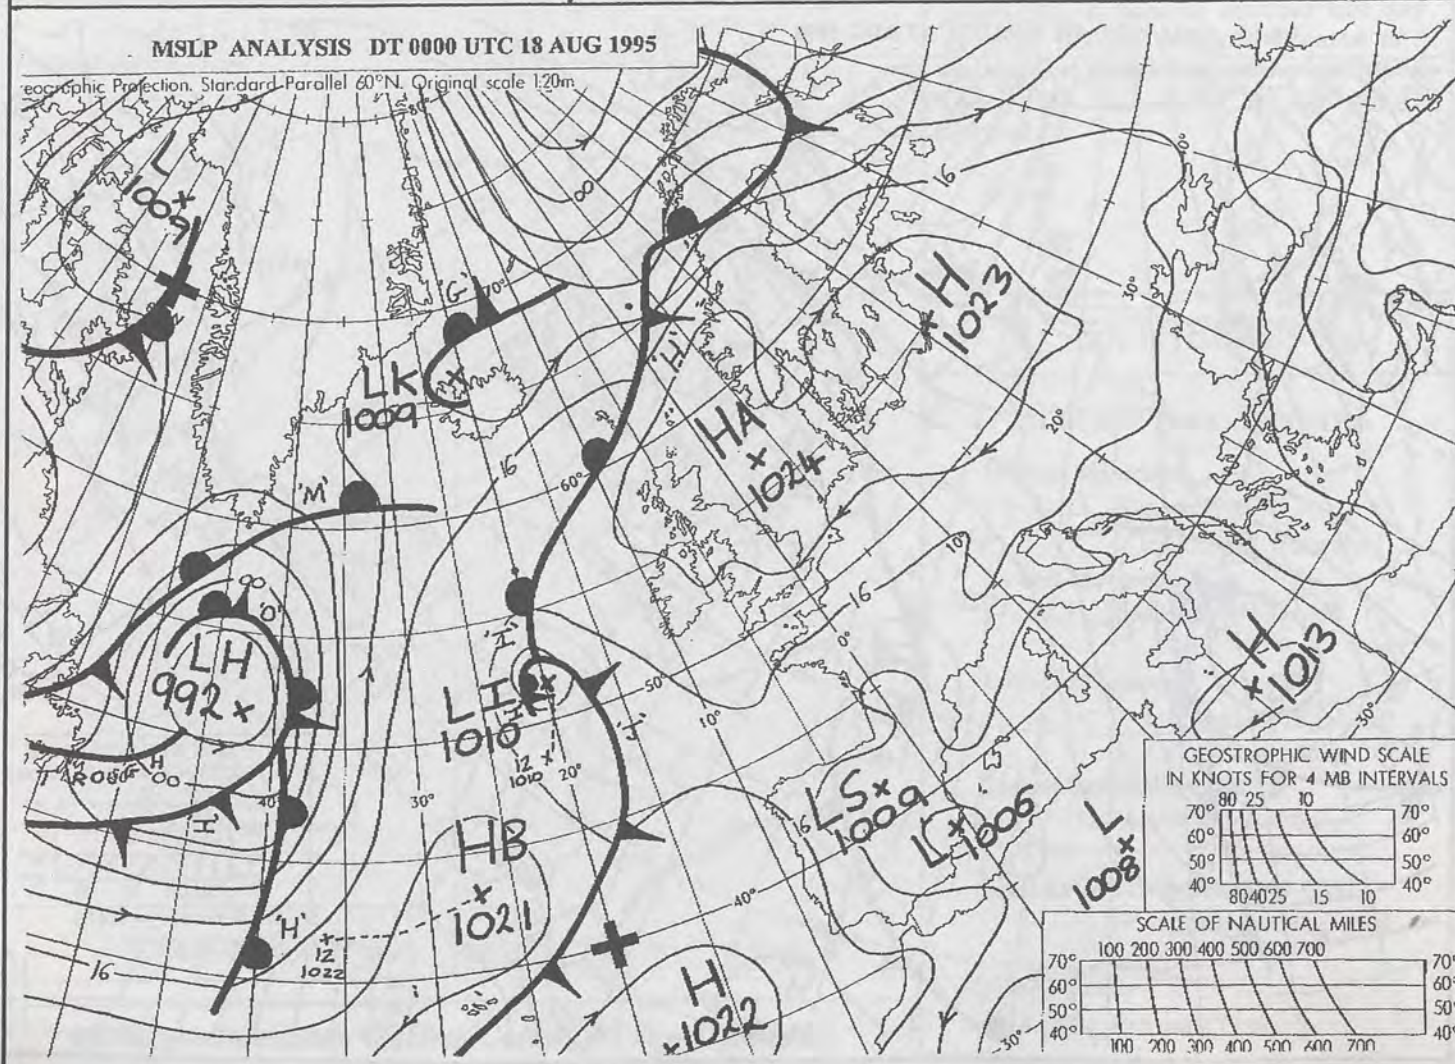 MSLP ANALYSIS DT 0000 UTC 18 AUG 1995
eographic Projection. Standard Parallel 60°N. Original scale 1:20m
L
1009
'G'
70°
16
H
1023
30°
'H'
LK
1009
HA
1024
20°
16
60°
'M'
10°
16
0°
'O'
LH
992
LI
1010
'I'
'J'
50
10°
12
1010
20°
H
1013
30°
40°
30°
'H'
HB
1021
12
1022
16
LS
1009
L
1006
L
1008
40°
H
1022
30°
GEOSTROPHIC WIND SCALE
IN KNOTS FOR 4 MB INTERVALS
80 25 10
70° 70°
60° 60°
50° 50°
40° 40°
80 40 25 15 10
SCALE OF NAUTICAL MILES
100 200 300 400 500 600 700
70° 70°
60° 60°
50° 50°
40° 40°
100 200 300 400 500 600 700